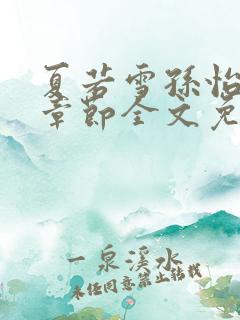 夏若雪孫怡
章節全文免
一泉溪水
未经同意禁止转载